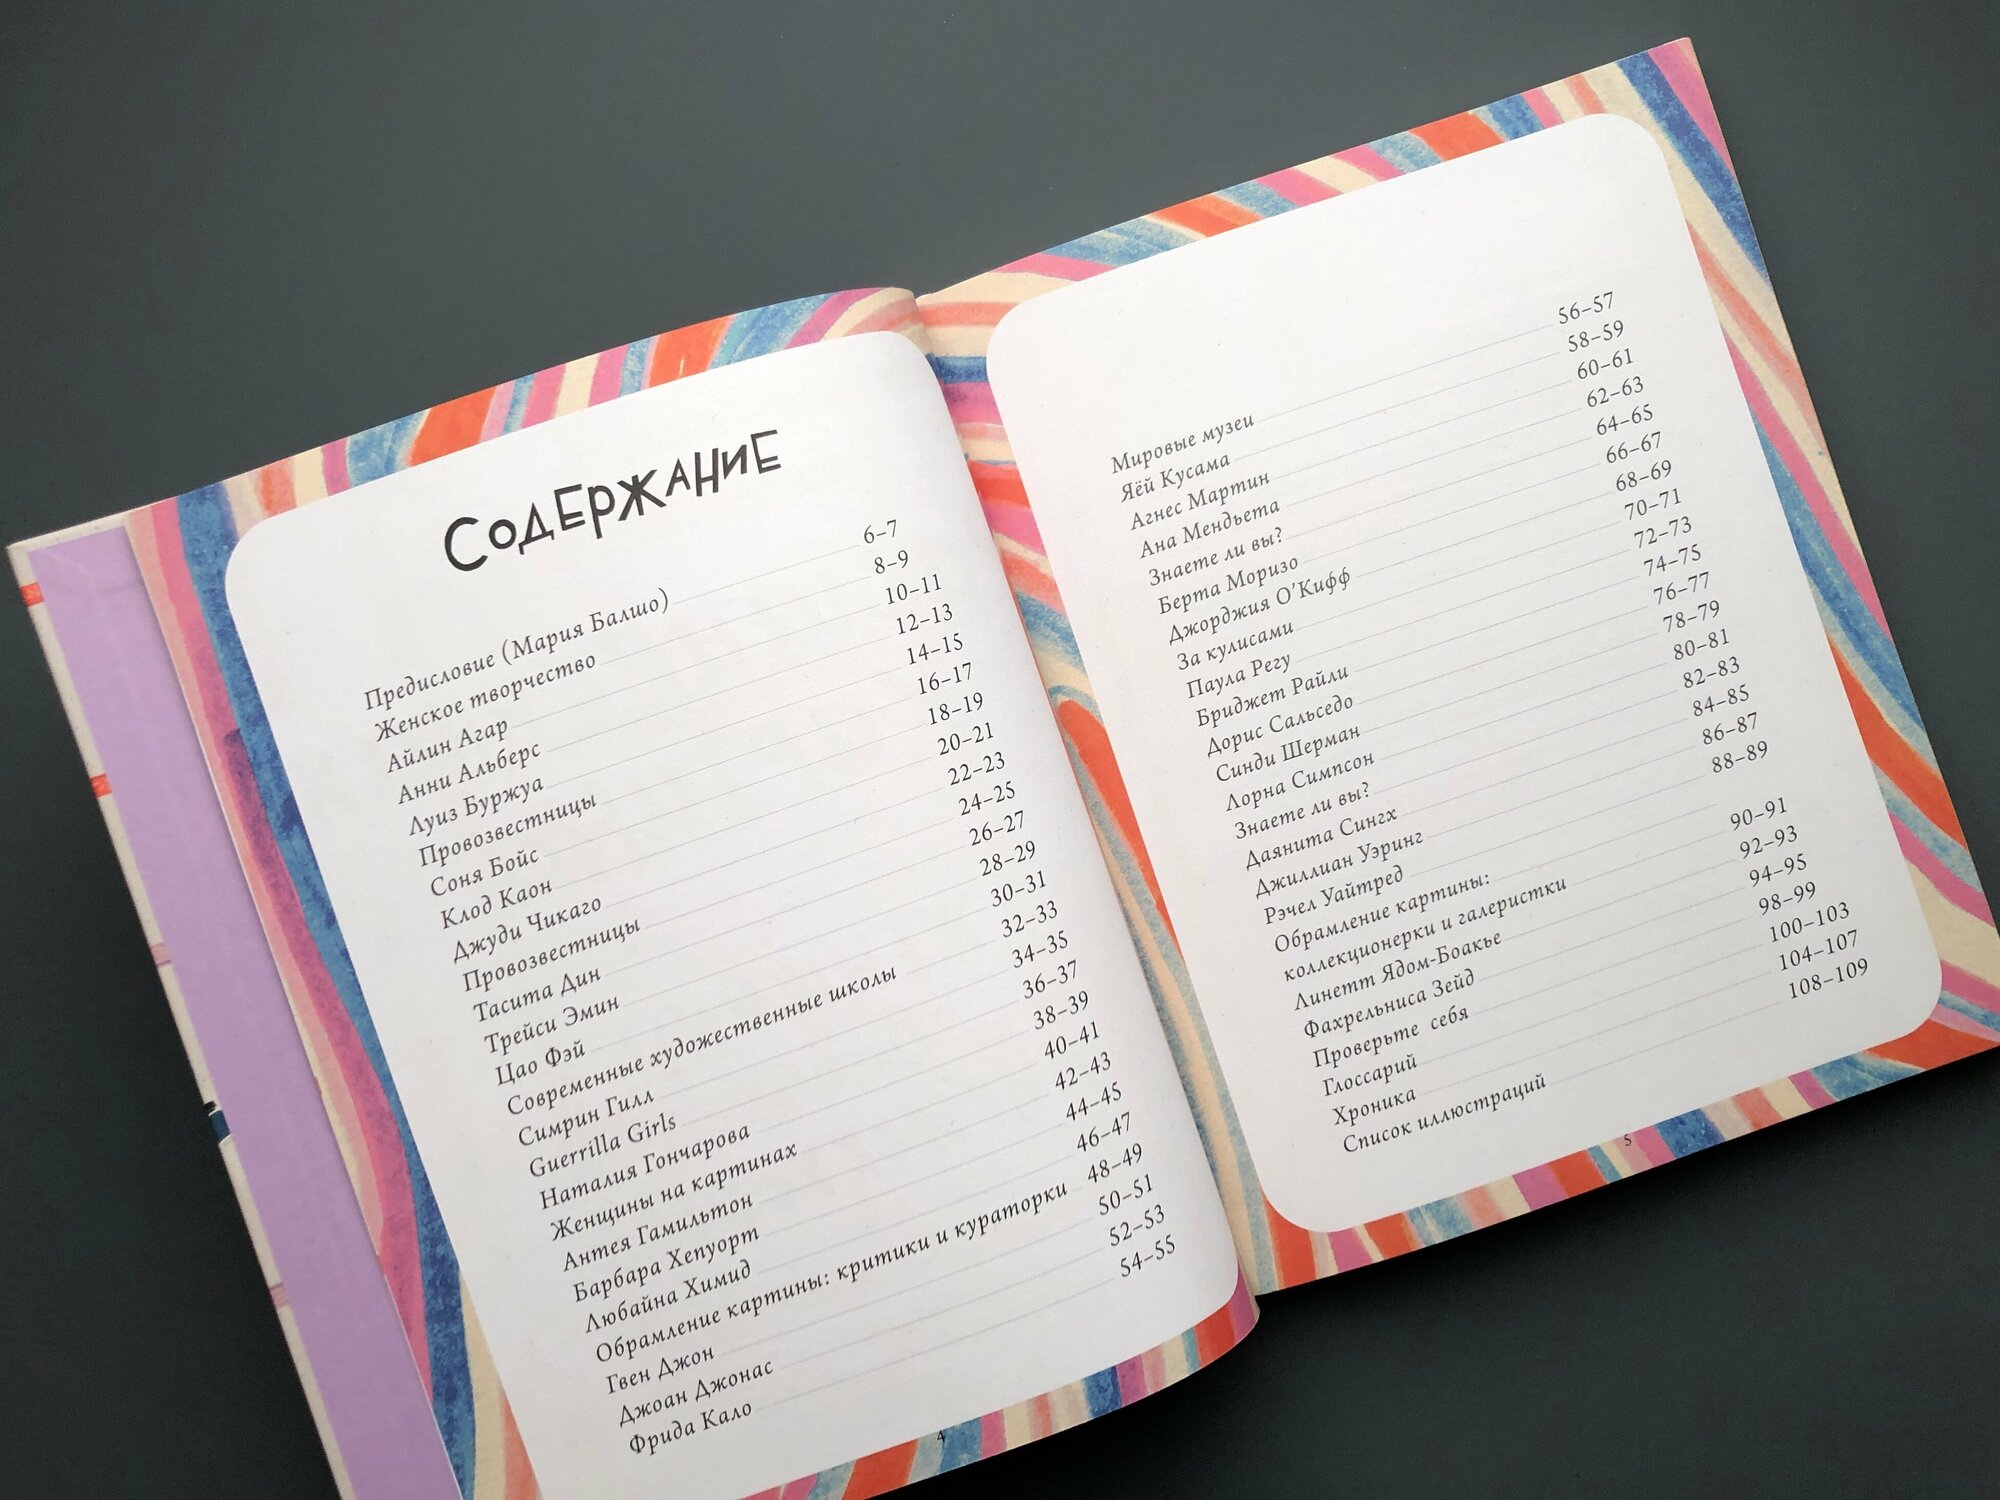 Содержание
Предисловие (Мария Балшо) 6–7
Женское творчество 8–9
Айлин Агар 10–11
Анни Альберс 12–13
Луиз Буржуа 14–15
Провозвестницы 16–17
Соня Бойс 18–19
Клод Каон 20–21
Джуди Чикаго 22–23
Провозвестницы 24–25
Тасита Дин 26–27
Трейси Эмин 28–29
Цао Фэй 30–31
Современные художественные школы 32–33
Симрин Гилл 34–35
Guerrilla Girls 36–37
Наталия Гончарова 38–39
Женщины на картинах 40–41
Антея Гамильтон 42–43
Барбара Хепуорт 44–45
Любайна Химид 46–47
Обрамление картины: критики и кураторки 48–49
Гвен Джон 50–51
Джоан Джонас 52–53
Фрида Кало 54–55
4
Мировые музеи 56–57
Яёй Кусама 58–59
Агнес Мартин 60–61
Ана Мендьета 62–63
Знаете ли вы? 64–65
Берта Моризо 66–67
Джорджия О’Кифф 68–69
За кулисами 70–71
Паула Регу 72–73
Бриджет Райли 74–75
Дорис Сальседо 76–77
Синди Шерман 78–79
Лорна Симпсон 80–81
Знаете ли вы? 82–83
Даянита Сингх 84–85
Джиллиан Уэринг 86–87
Рэчел Уайтред 88–89
Обрамление картины:
коллекционерки и галеристки 90–91
Линетт Ядом-Боакье 92–93
Фахрельниса Зейд 94–95
Проверьте себя 98–99
Глоссарий 100–103
Хроника 104–107
Список иллюстраций 108–109
5